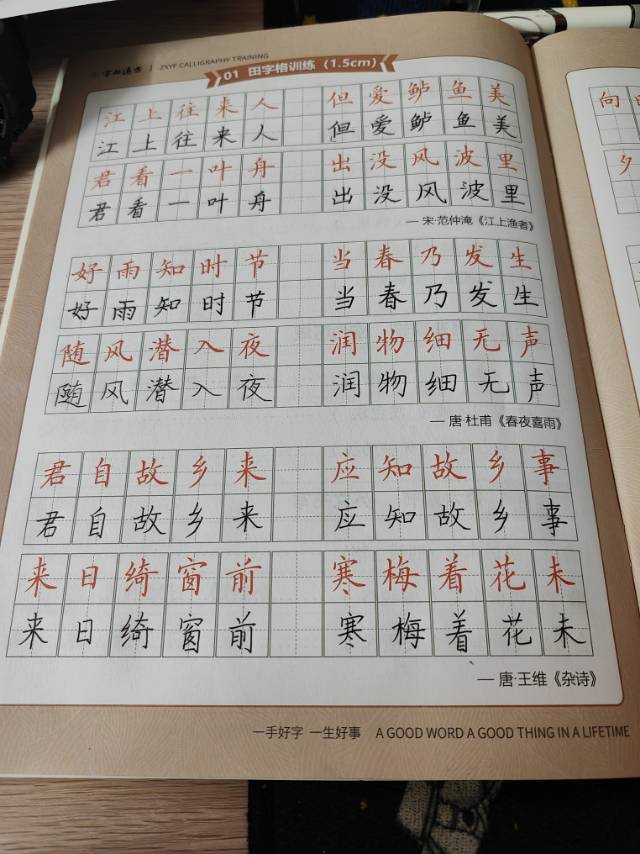 ZXYF CALLIGRAPHY TRAINING
01 田字格训练（1.5cm）
江上往来人 但爱鲈鱼美
江上往来人 但爱鲈鱼美
君看一叶舟 出没风波里
君看一叶舟 出没风波里
— 宋·范仲淹《江上渔者》
好雨知时节 当春乃发生
好雨知时节 当春乃发生
随风潜入夜 润物细无声
随风潜入夜 润物细无声
— 唐·杜甫《春夜喜雨》
君自故乡来 应知故乡事
君自故乡来 应知故乡事
来日绮窗前 寒梅着花未
来日绮窗前 寒梅着花未
— 唐·王维《杂诗》
一手好字 一生好事 A GOOD WORD A GOOD THING IN A LIFETIME
向
夕